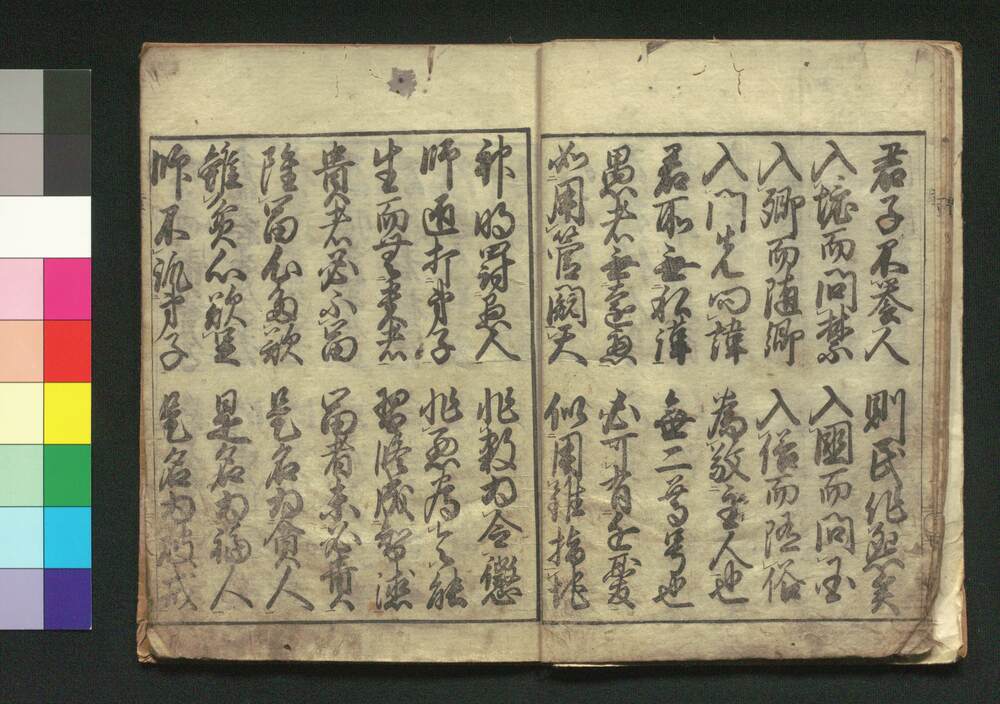 君子不誉人 則民作怨矣
入境而問禁 入國而問国
入郷而随郷 入俗而随俗
入門先問諱 為敬主人也
君所無私諱 無二尊号也
愚者無遠慮 必可有近憂
如用管闚天 似用錐指地
神明罰愚人 非殺為令懲
師匠打弟子 非悪為令能
生而無貴者 習修成智徳
貴者必不冨 冨者未必貴
雖冨心多欲 是名為貧人
雖貧心欲足 是名為福人
師不訓弟子 是名為破戒